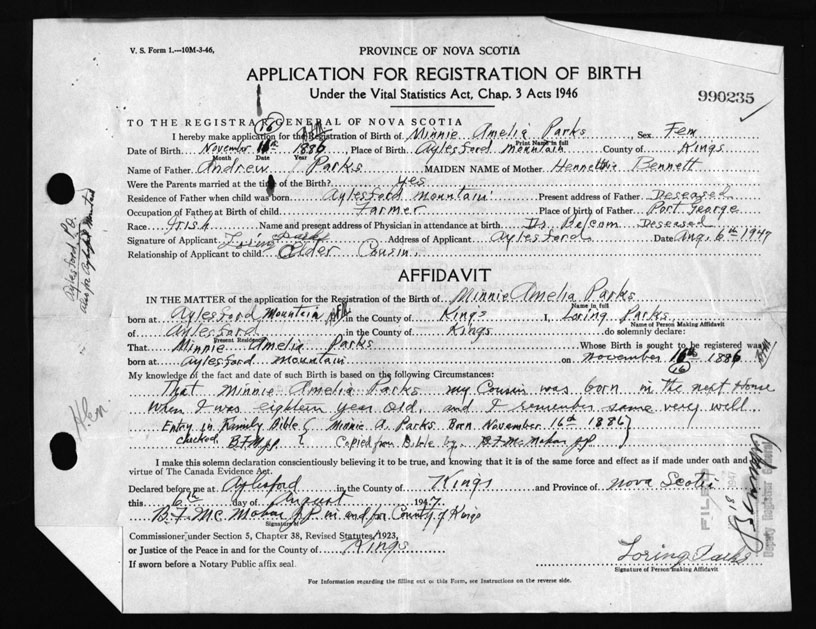 V. S. Form 1.—10M-3-46,
PROVINCE OF NOVA SCOTIA
APPLICATION FOR REGISTRATION OF BIRTH
Under the Vital Statistics Act, Chap. 3 Acts 1946
990235
TO THE REGISTRAR GENERAL OF NOVA SCOTIA
(16)
I hereby make application for the Registration of Birth of Minnie Amelia Parks, Sex Fem
Print Name in full
Date of Birth November 16th 1886, Place of Birth Aylesford Mountain County of Kings
Month Date Year
Name of Father Andrew Parks MAIDEN NAME of Mother Bennett
Were the Parents married at the time of the Birth? yes
Residence of Father when child was born Aylesford Mountain Present address of Father Deseased
Occupation of Father at Birth of child Farmer Place of birth of Father Port George
Race Irish Name and present address of Physician in attendance at birth Deseased
Signature of Applicant Address of Applicant Aylesford Date Aug. 6th 1947
Relationship of Applicant to child Older Cousin.
Aylesford P.O.
AFFIDAVIT
IN THE MATTER of the application for the Registration of the Birth of Minnie Amelia Parks
Name in full
born at Aylesford Mountain in the County of Kings I, Loring Parks
Name of Person Making Affidavit
of Aylesford in the County of Kings do solemnly declare:
Present Residence
That Minnie Amelia Parks Whose Birth is sought to be registered was
born at Aylesford Mountain on November 16th 1886
(16)
My knowledge of the fact and date of such Birth is based on the following Circumstances:
That Minnie Amelia Parks my Cousin was born in the next House
when I was eighteen year old, and I remember same very well
Entry in Family Bible ( Minnie A. Parks Born November 16th 1886 )
checked Copied from Bible by
I make this solemn declaration conscientiously believing it to be true, and knowing that it is of the same force and effect as if made under oath and
virtue of The Canada Evidence Act.
Declared before me at Aylesford in the County of Kings and Province of Nova Scotia
this 6th day of August 1947
B. F. McMahar J.P. in and for County of Kings
Signature of
Commissioner under Section 5, Chapter 38, Revised Statutes 1923,
or Justice of the Peace in and for the County of Kings
If sworn before a Notary Public affix seal.
Loring Parks
Signature of Person Making Affidavit
FILED
18
Deputy Registrar General
For Information regarding the filling out of this Form, see Instructions on the reverse side.